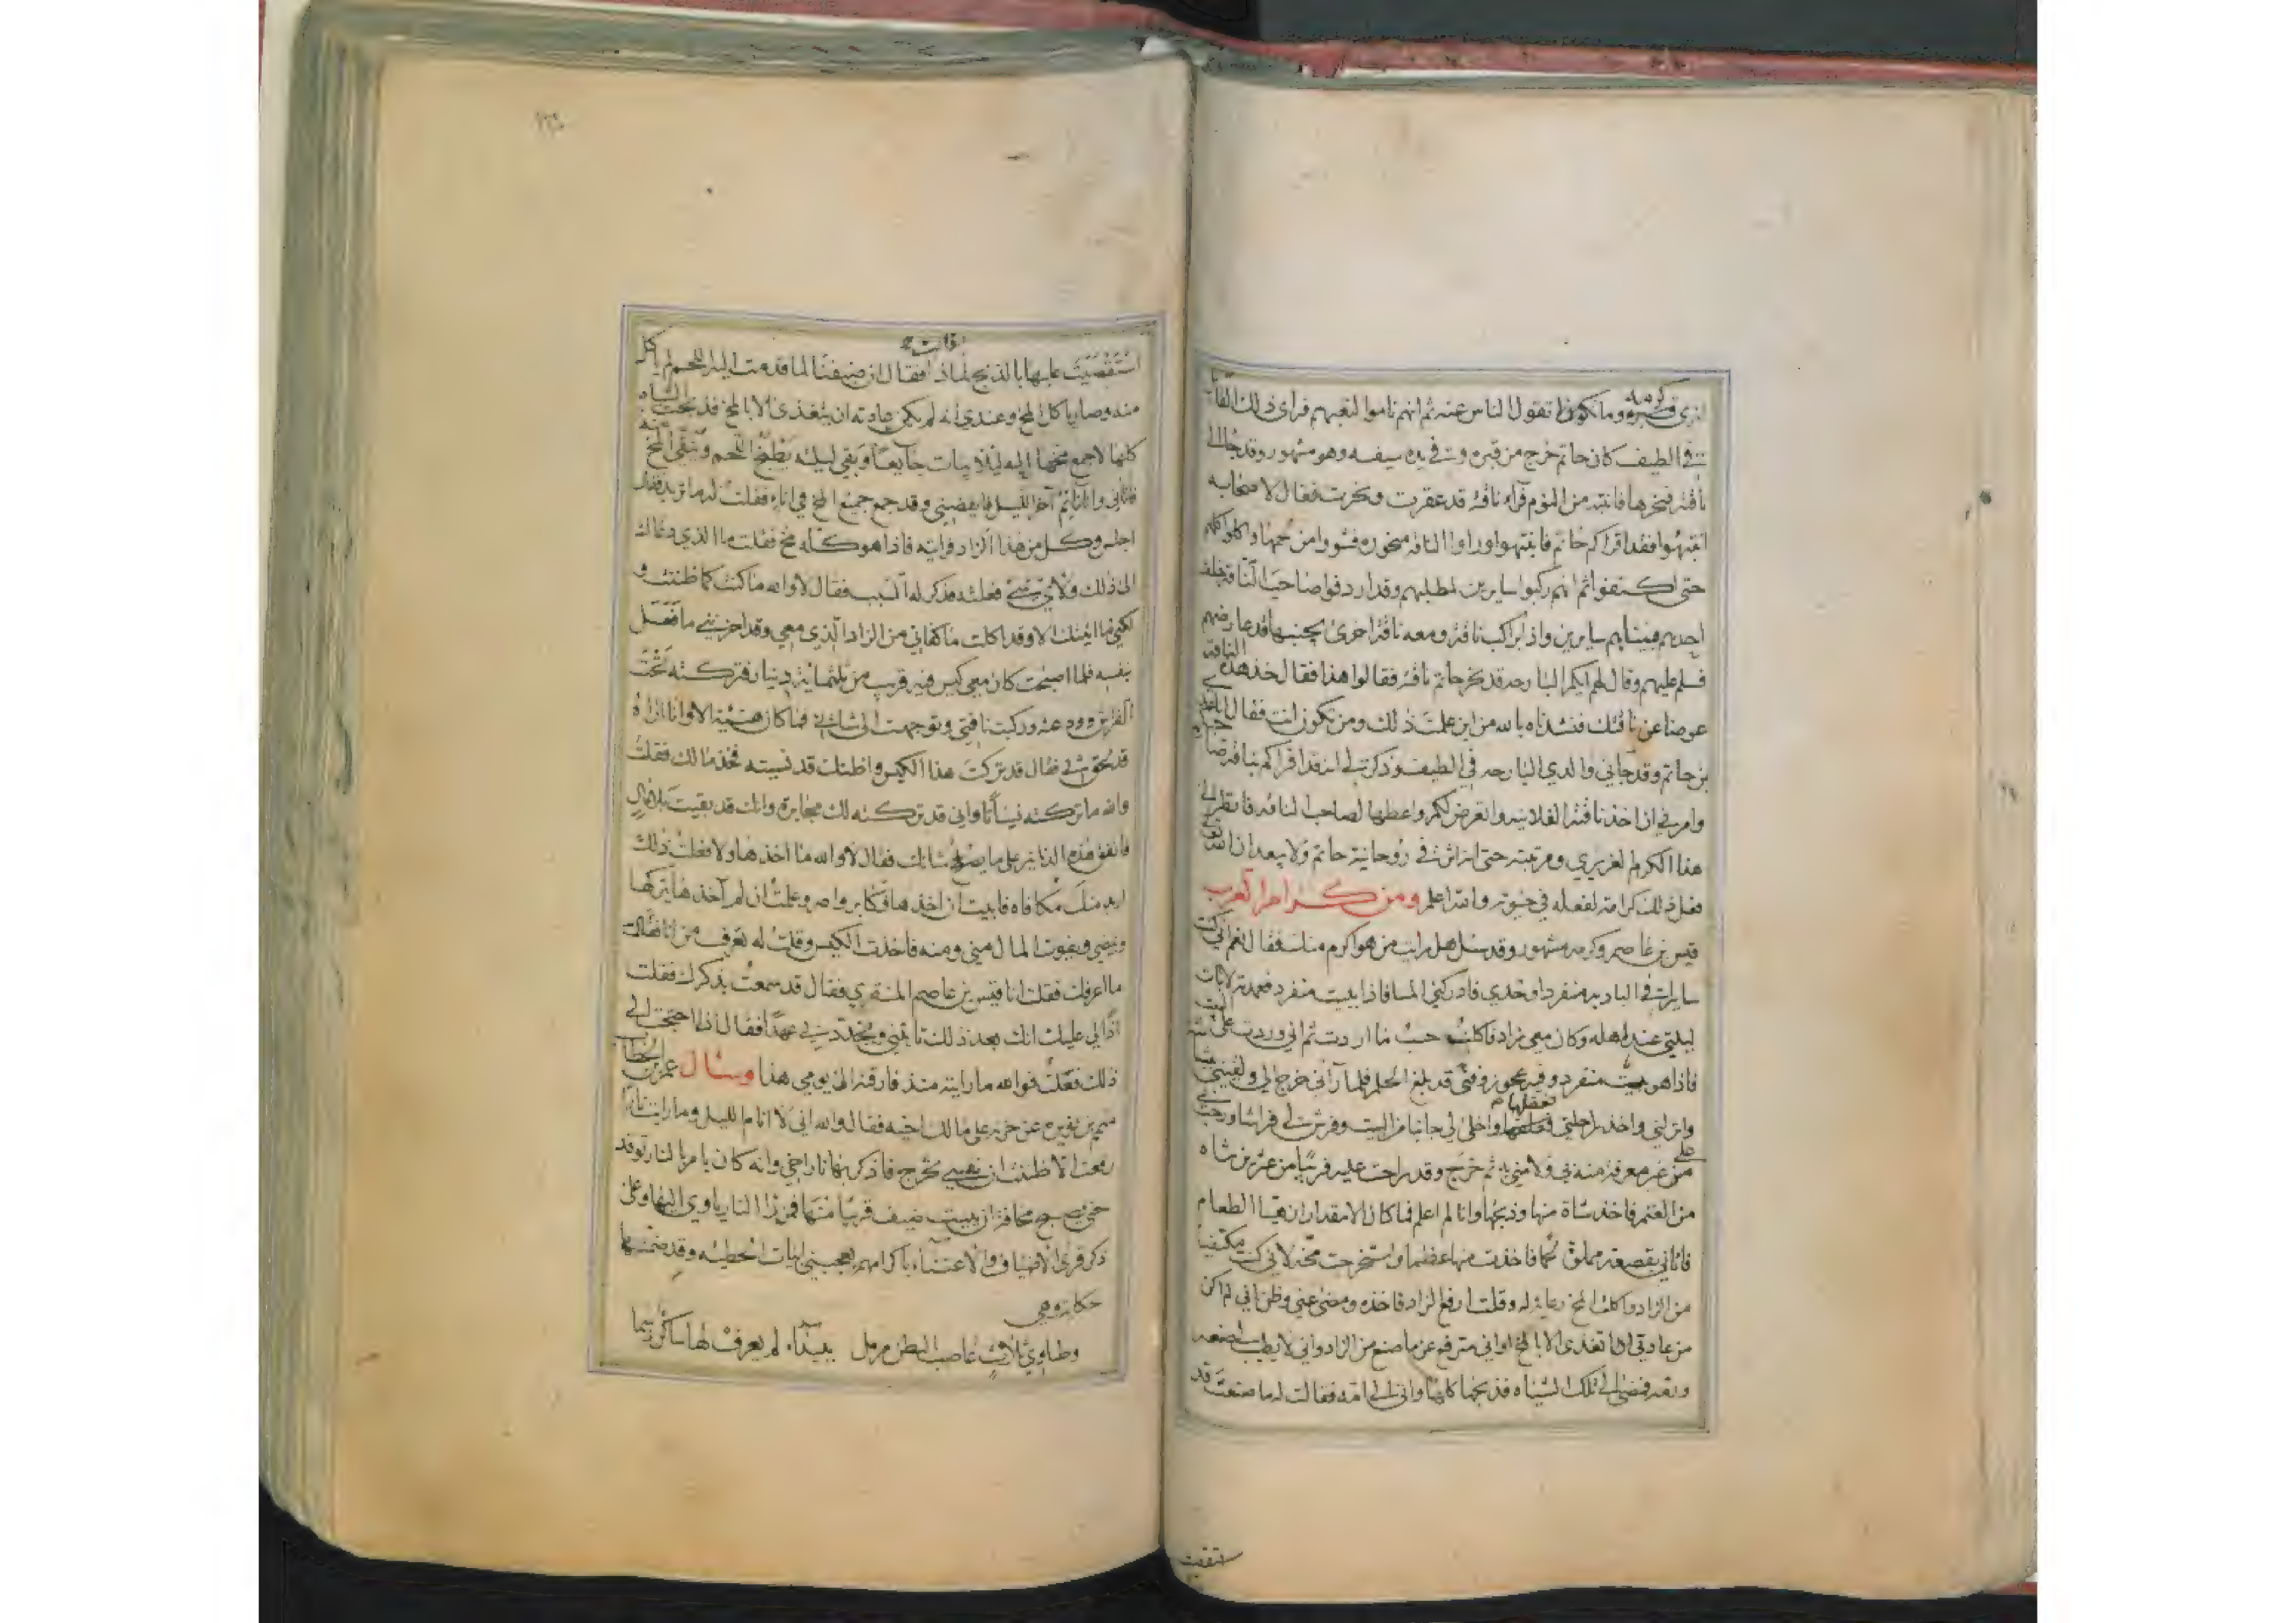 الذي في قبره كرمه وما تكون اتقول الناس عنه ثم انهم ناموا لتعبهم فراى ذلك القائل
في الطيف كان حاتم خرج من قبره وفي يده سيفه وهو مشهور وقد جا الى
ناقته فنحرها فانتبه من النوم فراء ناقته قد عقرت ونحرت فقال لاصحابه
انتبهوا فقد اقراكم حاتم فانتبهوا وراوا الناقه منحوره فشووا من لحمها واكلوا كلهم
حتى اكتفوا ثم انهم ركبوا سايرين لمطلبهم وقد اردفوا صاحب الناقه خلف
احدهم فبيناهم سايرين واذا براكب ناقة ومعه ناقة اخرى يجنبها قد عارضهم
فسلم عليهم وقال لهم ايكم البارحه قد نحر حاتم ناقته فقالوا هذا فقال خذ هذه الناقه
عوضا عن ناقتك فنشدناه بالله من اين علمت ذلك ومن تكون انت فقال انا عدي
بن حاتم وقد جاني والدي البارحه في الطيف وذكر لي انه قد اقراكم بناقة صاحبكم
وامرني ان اخذ ناقته الفلانيه واتعرض لكم واعطها لصاحب الناقه فانظر الى
هذا الكرم الغريزي ومرتبته حتى انه اثر في روحانية حاتم ولا يبعد ان الله تعالى
فعل ذلك كرامة لفعله في حيوته والله اعلم ومن كرام العرب
قيس بن عاصم وكرمه مشهور وقد سئل هل رايت من هو اكرم منك فقال نعم اني كنت
سايرا في الباديه منفردا وحدي فادركني المسا فاذا ببيت منفرد فعمدته لابات
ليلتي عند اهله وكان معي زاد فاكلت حسب ما اردت ثم اني وردت على البيت
فاذا هو بيت منفرد وفيه عجوز وفتى قد بلغ الحلم فلما رآني خرج الي ولقيني
وانزلني واخذ راحلتي فعقلها واخلى لي جانبا من البيت وفرش لي فراشا ورحب بي
من غير معرفة منه بي ولا مني به ثم خرج وقد راحت عليه قريبا من عشرين شاه
من الغنم فاخذ شاة منها وذبحها وانا لم اعلم فما كان الا مقدار ان تهيا الطعام
فاتاني بقصعة مملوة لحما فاخذت منها عظما واستخرجت مخه لاني كنت مكتفيا
من الزاد واكلت المخ رعاية له وقلت ارفع الزاد فاخذه ومضى عني وظن اني لم اكن
من عادتي اتغدى الا بالمخ او اني مترفع عن ما صنع من الزاد واني لا يطيب لي صنعه
وبعد فمضى الى تلك الشياه فذبحها كلها واتى الى امه فقالت له ما صنعت قد
استقصيت
استقصيت عليها بالذبح لماذا قالت فقال ان ضيفنا لما قدمت اليه اللحم لم ياكل
منه وصار ياكل المخ وعندي انه لم يكن عادته ان يتغذى الا بالمخ فذبحت الشياه
كلها لاجمع مخها اليه ليلا يبات جايعا وبقي ليله يطبخ اللحم وينقي المخ منه
فاتاني وانا نايم آخر الليل فايقضني وقد جمع جميع المخ في اناء فقلت له ما تريد فقال
اجلس وكل من هذا الزاد فرايته فاذا هو كله مخ فقلت ما الذي دعاك
الى ذلك ولاي شي فعلته فذكر له السبب فقال لا والله ما كنت كما ظننت و
لكني ما اتيتك الا وقد اكلت ما كفاني من الزاد الذي معي وقد احزنني ما فعل
بنفسه فلما اصبحت كان معي كيس فيه قريب من ثلثماية دينار فتركته تحت
الفراش وودعته وركبت ناقتي وتوجهت الى شاني فما كان هنيئة الا وانا اراه
قد لحق بي فقال قد تركت هذا الكيس واظنك قد نسيته فخذ مالك فقلت
والله ما تركته نسيانا واني قد تركته لك مجابرة وانك قد بقيت بلا مال
فانفق هذه الدنانير على ما يصلح شانك فقال لا والله ما اخذها ولا فعلت ذلك
اريد منك مكافاه فابيت ان اخذها فكابر واصر وعلمت ان لم آخذها يتركها
ويمضي ويفوت المال مني ومنه فاخذت الكيس وقلت له تعرف من انا فقال
ما اعرفك فقلت انا قيس بن عاصم المنقري فقال قد سمعت بذكرك فقلت
اذا لي عليك انك بعد ذلك تاتيني وتجدد بي عهدا فقال اذا احتجت الى
ذلك فعلت فوالله ما رايته منذ فارقته الى يومي هذا وسال عمر بن الخطاب
متمم بن نويره عن حزنه على مالك اخيه فقال والله اني لا انام الليل وما رايت نارا
رفعت الا ظننت ان نفسي تخرج فاذكر بها نار اخي وانه كان يامر بالنار توقد
حتى يصبح مخافة ان يبيت ضيف قريبا منها فمن را النار ياوي اليها وعلى
ذكر قرى الاضياف والاعتناء باكرامهم يعجبني ابيات الحطيئه وقد ضمنها
حكاية وهي
وطاوي ثلاث عاصب البطن مرمل ببيداء لم يعرف لها ساكن رسما